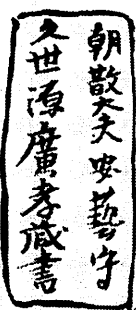 朝散大夫安藝守
久世源廣孝蔵書